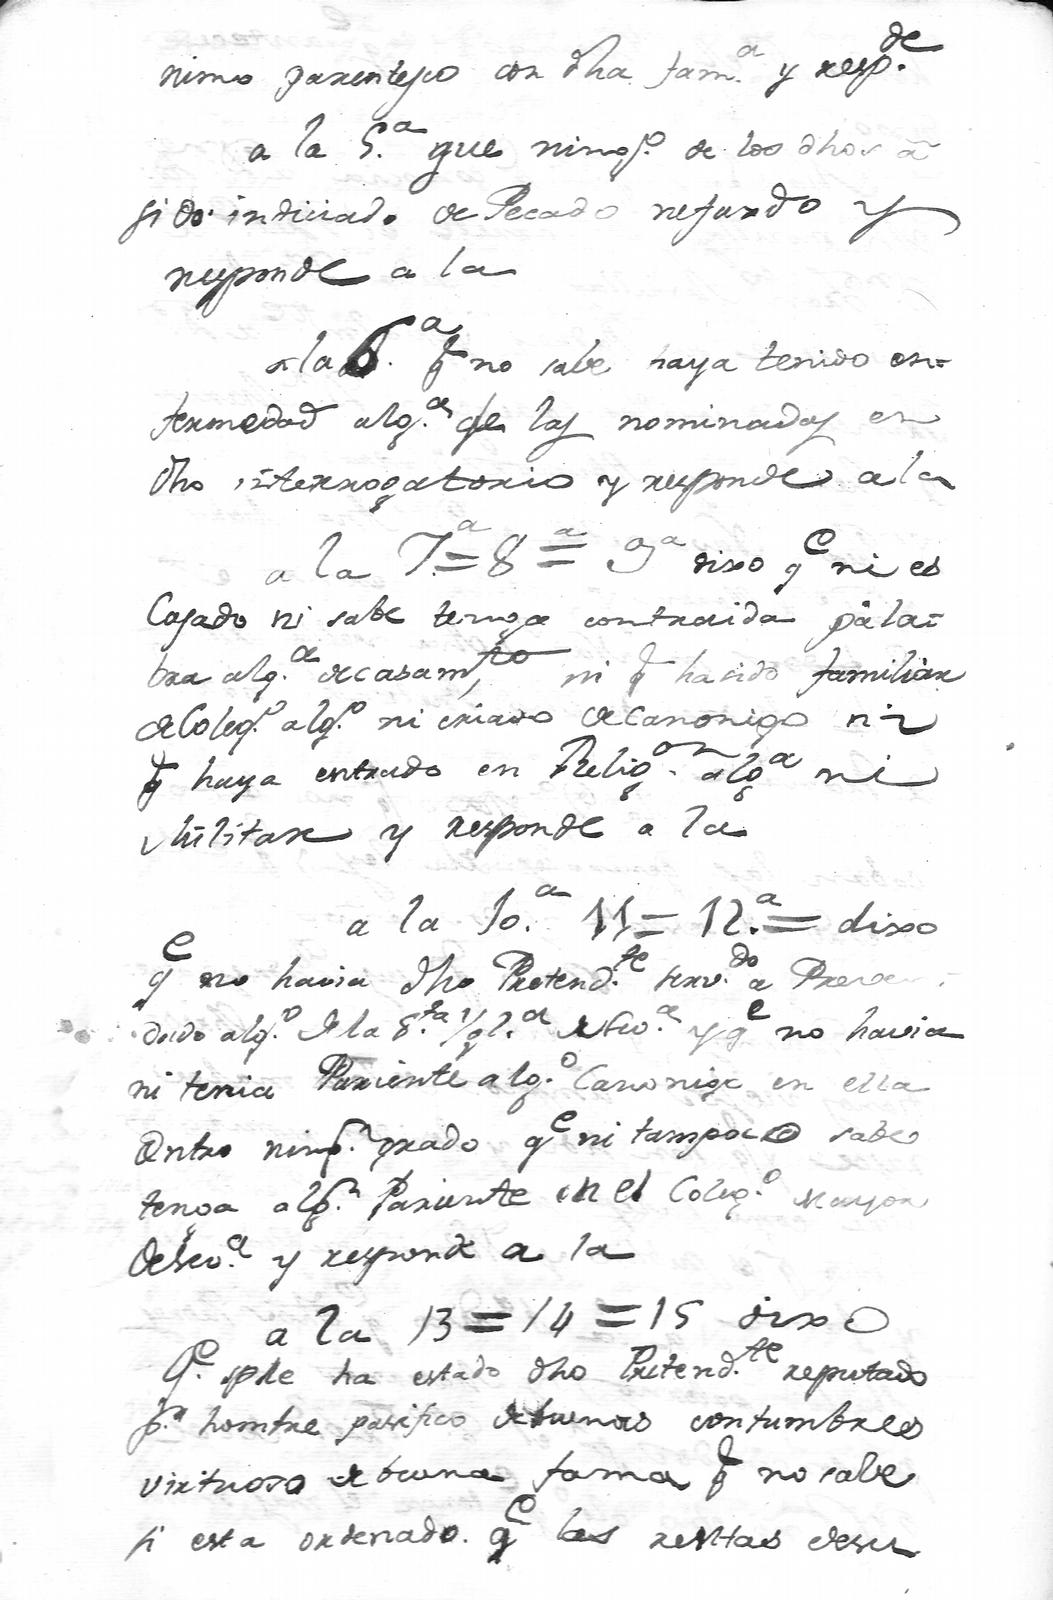 nimo parentesco con dha fam.ª y resp.de
a la 5.ª que ning.º de los dhos a
sido indiciado de Pecado nefando y
responde a la
a la 6.ª q no sabe haya tenido en=
fermedad alg.ª de las nominadas en
dho interrogatorio y responde a la
a la 7.ª= 8ª= 9ª dixo qe ni es
Casado ni sabe tenga contraida pala=
bra alg.ª de casam.to ni q ha sido familiar
de Coleg.º alg.º ni criado de canonigo ni
q haya entrado en Relig.on algª ni
Militar y responde a la
a la 10.ª 11= 12.ª= dixo
qe no havia dho Pretend.te serv.do a
dado alg.º de la S.ta Ygl.ª de y qe no havia
ni tenia Pariente alg.º Canonigo en ella
dentro ning.n grado qe ni tampoco sabe
tenga alg.n Pariente en el Coleg.º mayor
y responde a la
a la 13= 14= 15 dixo
q.e spre ha estado dho Pretend.te reputado
p.r hombre pasifico de buenas contumbres
virtuoso de buena fama q no sabe
si esta ordenado. qe las rentas de su